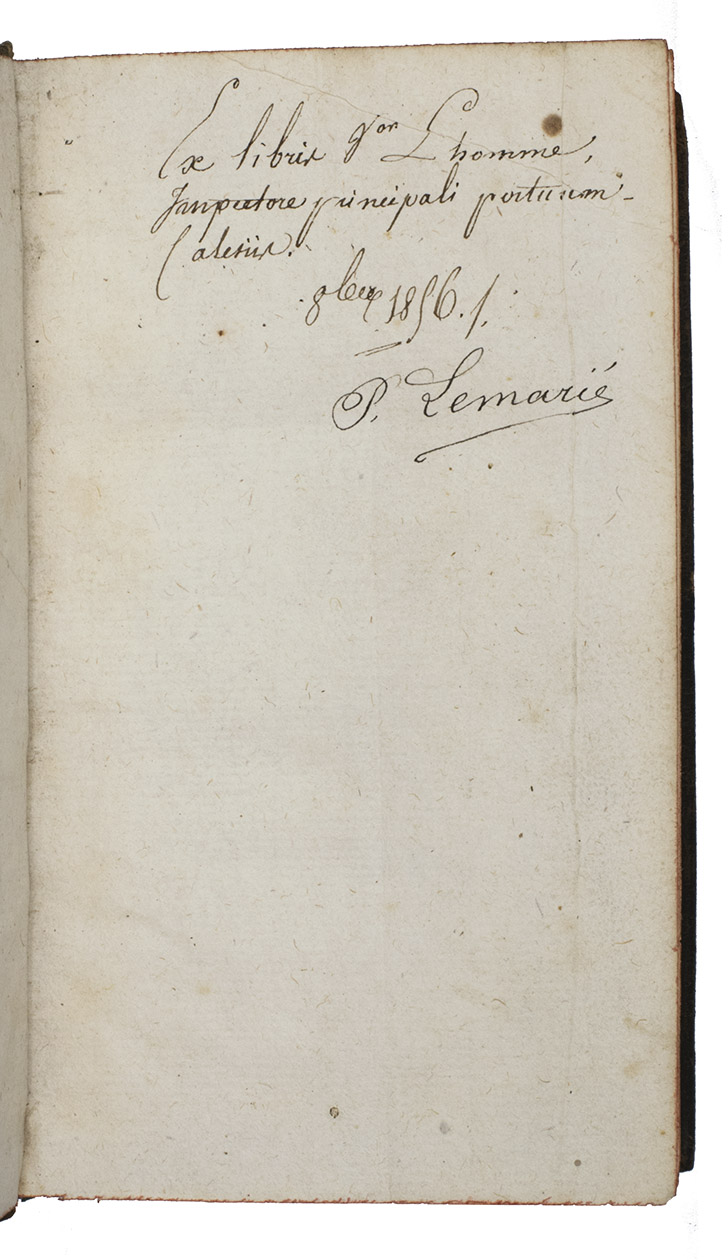 Ex libris Yon Lhomme,
Inspectore principali portuum -
Calesiis.
8ber 1856./.
P. Lemarié